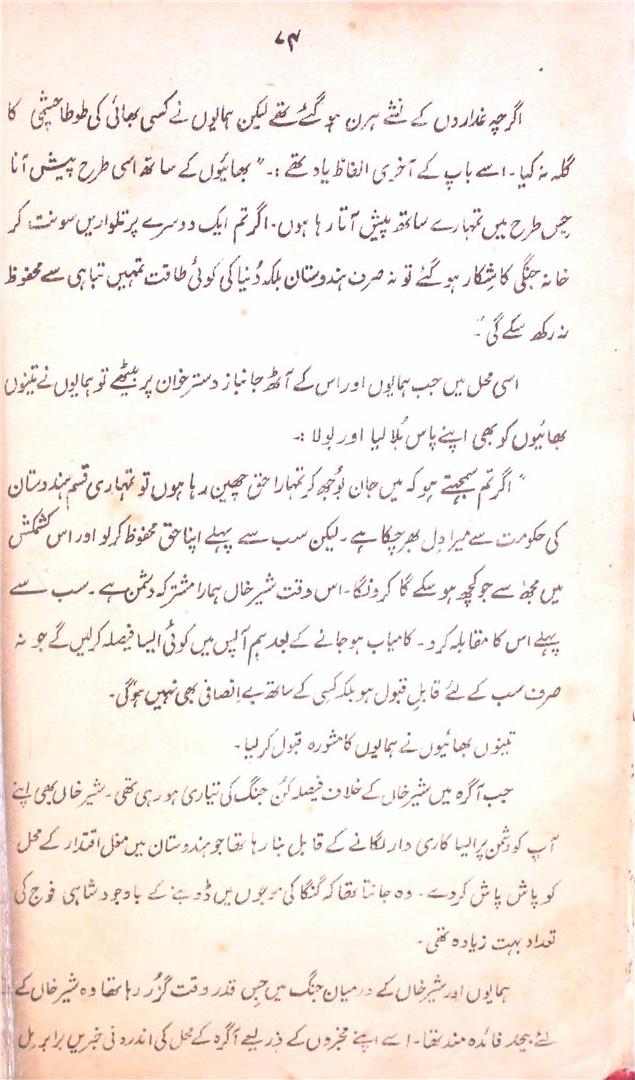 ۷۴
اگرچہ غداروں کے نشے ہرن ہو گئے تھے لیکن ہمایوں نے کسی بھائی کی طوطا چشمی کا
گلہ نہ کیا۔ اسے باپ کے آخری الفاظ یاد تھے :۔ "بھائیوں کے ساتھ اسی طرح پیش آنا
جس طرح میں تمہارے ساتھ پیش آتا رہا ہوں۔ اگر تم ایک دوسرے پر تلواریں سونت کر
خانہ جنگی کا شکار ہو گئے تو نہ صرف ہندوستان بلکہ دُنیا کی کوئی طاقت تمہیں تباہی سے محفوظ
نہ رکھ سکے گی"۔
اسی محل میں جب ہمایوں اور اس کے آٹھ جانباز دسترخوان پر بیٹھے تو ہمایوں نے تینوں
بھائیوں کو بھی اپنے پاس بُلا لیا اور بولا :۔
"اگر تم سمجھتے ہو کہ میں جان بُوجھ کر تمہارا حق چھین رہا ہوں تو تمہاری قسم ہندوستان
کی حکومت سے میرا دِل بھر چکا ہے۔ لیکن سب سے پہلے اپنا حق محفوظ کر لو اور اس کشمکش
میں مجھ سے جو کچھ ہو سکے گا کرونگا۔ اس وقت شیر خاں ہمارا مشترکہ دشمن ہے۔ سب سے
پہلے اس کا مقابلہ کرو۔ کامیاب ہو جانے کے بعد ہم آپس میں کوئی ایسا فیصلہ کر لیں گے جو نہ
صرف سب کے لئے قابلِ قبول ہو بلکہ کسی کے ساتھ بے انصافی بھی نہیں ہوگی۔
تینوں بھائیوں نے ہمایوں کا مشورہ قبول کر لیا۔
جب آگرہ میں شیر خاں کے خلاف فیصلہ کُن جنگ کی تیاری ہو رہی تھی۔ شیر خاں بھی اپنے
آپ کو دشمن پر ایسا کاری وار لگانے کے قابل بنا رہا تھا جو ہندوستان میں مغل اقتدار کے محل
کو پاش پاش کر دے۔ وہ جانتا تھا کہ گنگا کی موجوں میں ڈوبنے کے باوجود شاہی فوج کی
تعداد بہت زیادہ تھی۔
ہمایوں اور شیر خاں کے درمیان جنگ میں جس قدر وقت گزُر رہا تھا وہ شیر خاں کے
لئے بیحد فائدہ مند تھا۔ اسے اپنے مخبروں کے ذریعے آگرہ کے محل کی اندرونی خبریں برابر مِل